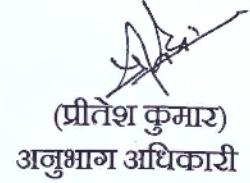 (प्रीतेश कुमार)
अनुभाग अधिकारी